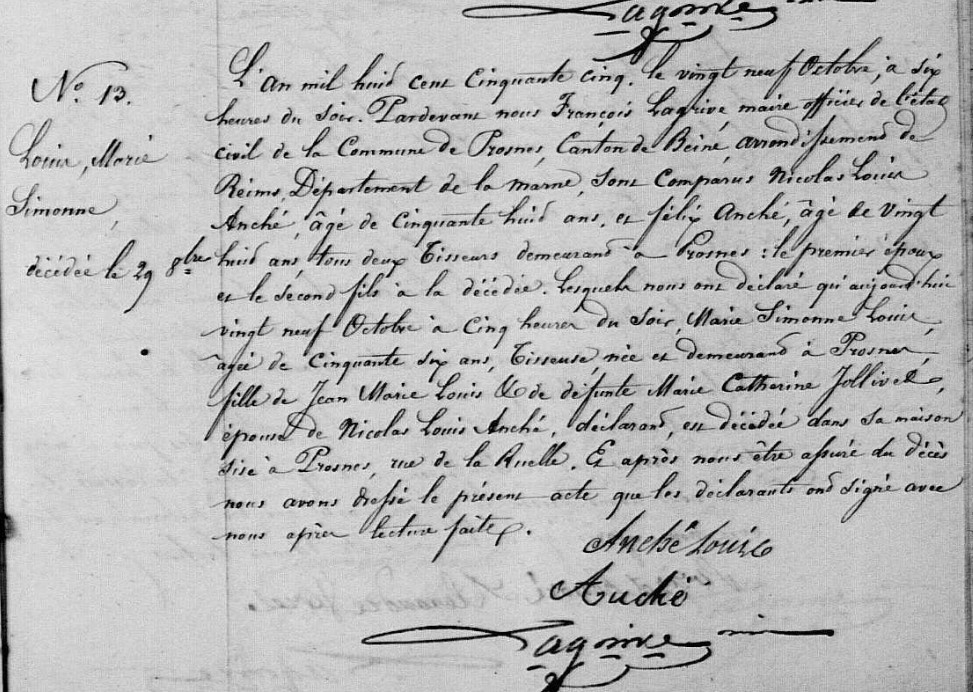 Lagrive
N.o 13.
Louis, Marie
Simonne,
décédée le 29 8bre
L'an mil huid cent cinquante cinq. le vingt neuf Octobre, à six
heures du soir. Pardevant nous François Lagrive, maire officier de l'état
civil de la Commune de Prosnes, Canton de Beine, arrondissement de
Reims, Département de la marne, sont comparus Nicolas Louis
Anché, âgé de cinquante huid ans, et félix Anché, âgé de vingt
huid ans, tous deux Tisseurs demeurand à Prosnes : le premier époux
et le second fils à la décédée. Lesquels nous ont déclaré qu'aujourd'hui
vingt neuf Octobre à cinq heures du soir, Marie Simonne Louis,
âgée de cinquante six ans, Tisseuse, née et demeurand à Prosnes,
fille de Jean Marie Louis & de défunte Marie Catherine Jollivet,
épouse de Nicolas Louis Anché, déclarand, est décédée dans sa maison
sise à Prosnes, rue de la Ruelle. Et après nous être assuré du décès
nous avons dressé le présent acte que les déclarants ond signé avec
nous après lecture faite.
Anché Louis
Auché
Lagrive